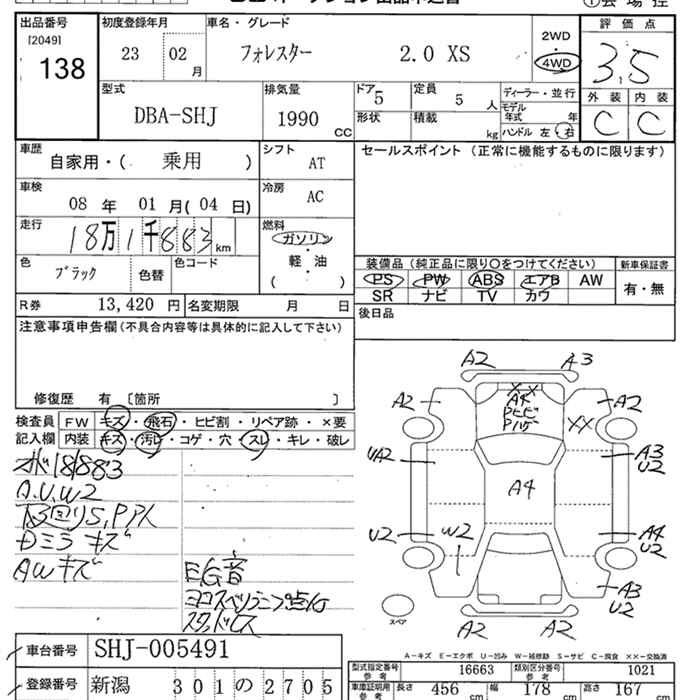 出品番号 初度登録年月 車名・グレード 2WD 評価点
[2049] 23 02 フォレスター 2.0 XS ・ 3.5
138 月 4WD
型式 排気量 ドア 定員 ディーラー・並行 外装 内装
DBA-SHJ 1990 5 5 人 モデル年式 年 C C
cc 形状 積載 kg ハンドル 左・右
車歴 シフト セールスポイント (正常に機能するものに限ります)
自家用・( 乗用 ) AT
車検 冷房
08 年 01 月(04 日) AC
走行 燃料
18万1千883 km ガソリン
色 色コード 軽・油 装備品 (純正品に限り○をつけてください) 新車保証書
ブラック 色替 ( ) PS PW ABS エアB AW 有・無
SR ナビ TV カワ
R券 13,420 円 名変期限 月 日
後日品
注意事項申告欄(不具合内容等は具体的に記入して下さい)
修復歴 有 〔箇所 〕
検査員 FW キズ・飛石・ヒビ割・リペア跡・×要
記入欄 内装 キズ・汚レ・コゲ・穴・スレ・キレ・破レ
A.U.W2
Dミラ キズ
AWキズ
EG音
A2 A3
A2 XX A2
A4
Pヒビ
Pハゲ XX
UA2 A3
U2
A4
U2 W2 A4
U2
A3
U2
A2 A2
スペア
A-キズ E-エクボ U-凹み W-補修跡 S-サビ C-腐食 ××-交換済
車台番号 SHJ-005491
登録番号 新潟 301の2705
型式指定番号 参考 16663 類別区分番号 参考 1021
車庫証明用 参考 長さ 456 cm 幅 178 cm 高さ 167 cm